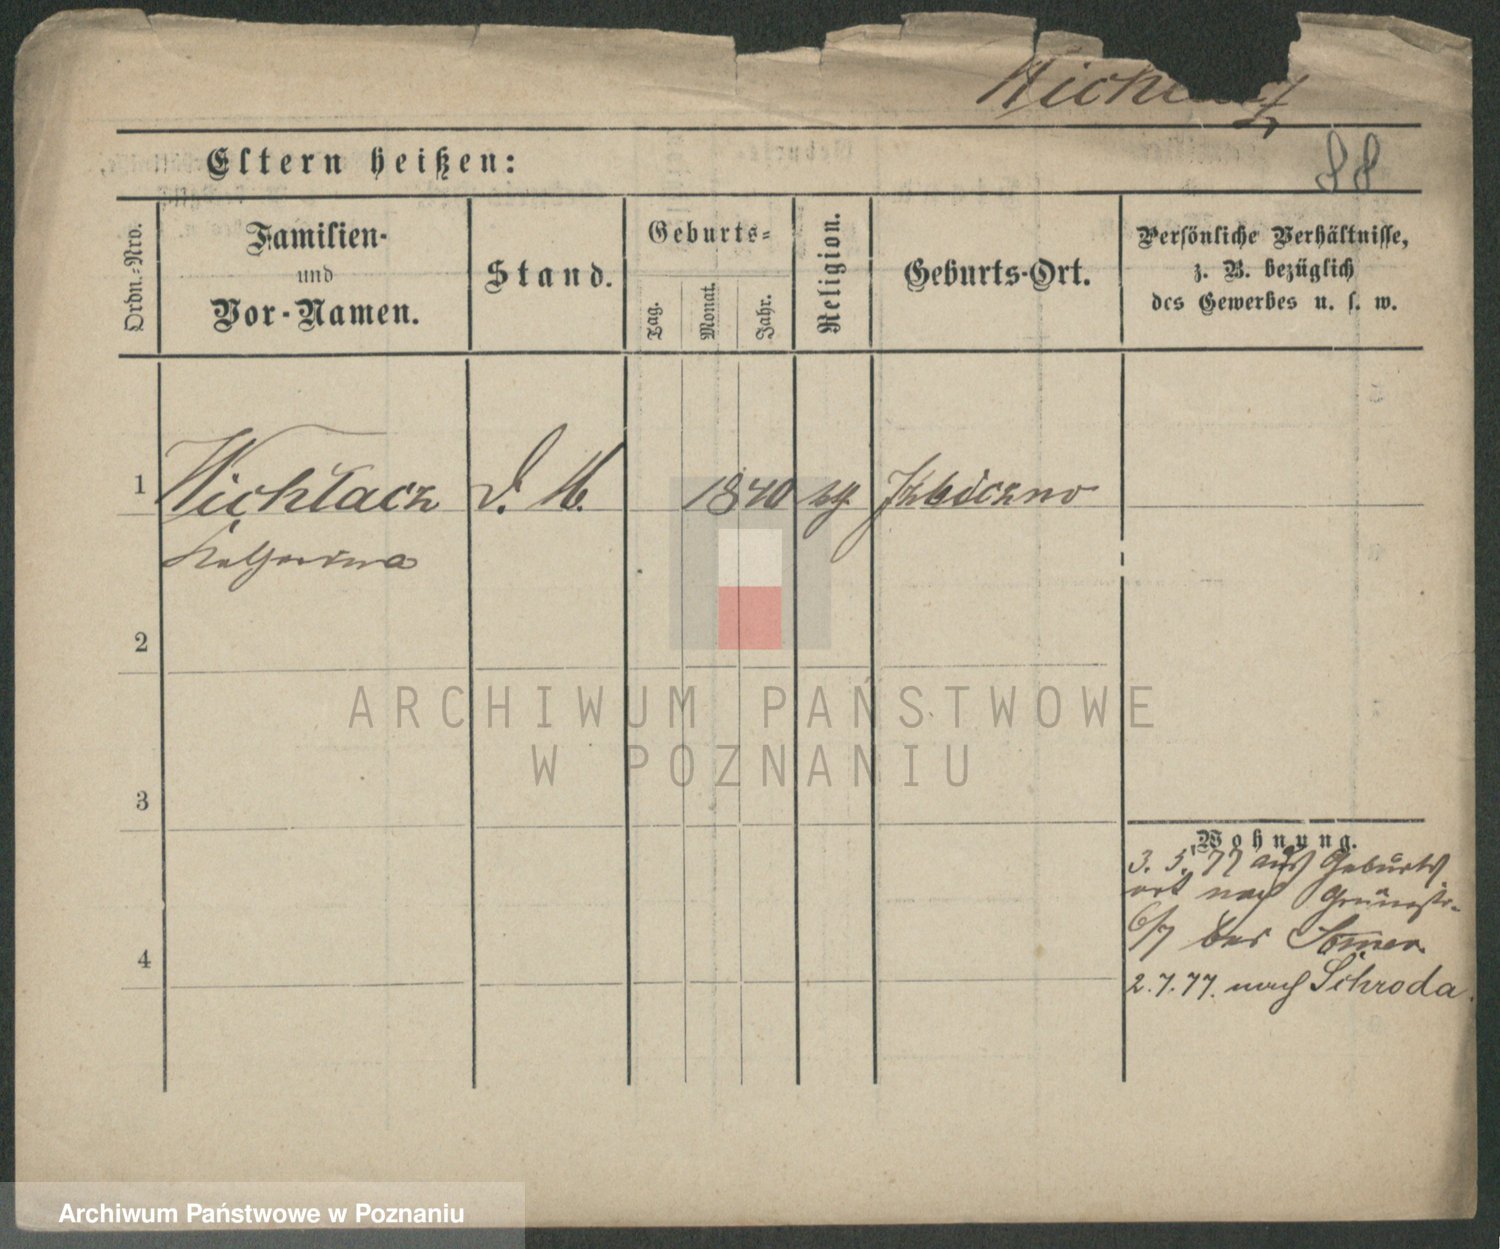 88
Eltern heißen:
Ordn.-Nro.
Familien-
und
Vor-Namen.
Stand.
Geburts-
Tag.
Monat.
Jahr.
Religion.
Geburts-Ort.
Persönliche Verhältnisse,
z. B. bezüglich
des Gewerbes u. s. w.
1
Wichłacz
D. M.
1840
Katharina
2
3
4
Wohnung.
3. 5. 77 aus Geburts
ort nach
6/7 bei
2. 7. 77. nach Schroda.
ARCHIWUM PAŃSTWOWE
W POZNANIU
Archiwum Państwowe w Poznaniu